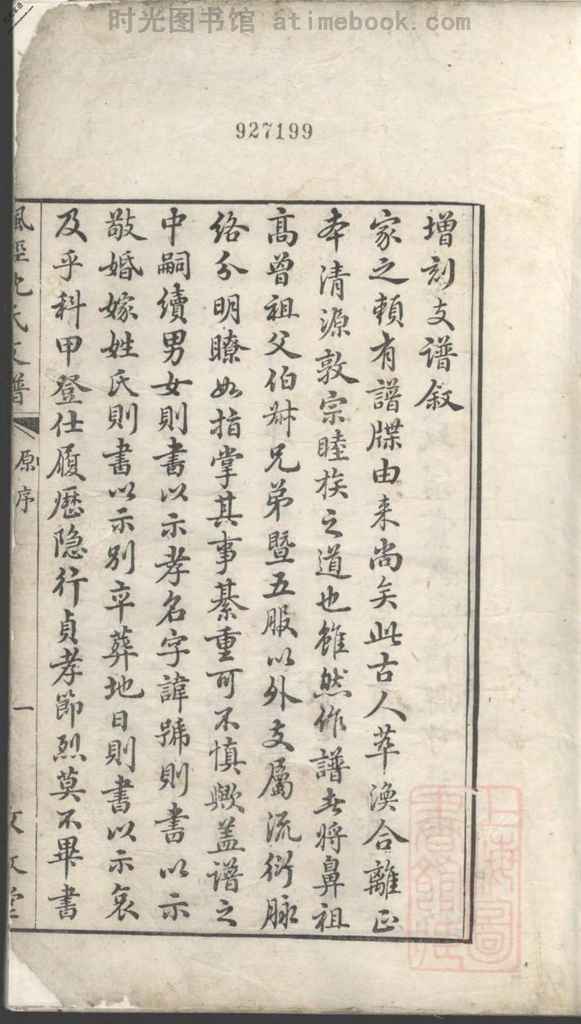 时光图书馆 atimebook.com
927199
增刻支谱叙
家之頼有譜牒由来尚矣此古人萃渙合離正
本清源敦宗睦族之道也雖然作譜者將鼻祖
高曾祖父伯叔兄弟暨五服以外支屬流衍脉
络分明瞭如指掌其事綦重可不慎歟盖譜之
中嗣續男女則書以示孝名字諱號則書以示
敬婚嫁姓氏則書以示别卒葬地日則書以示哀
及乎科甲登仕履歷隐行貞孝節烈莫不畢書
沈氏支譜
原序
一